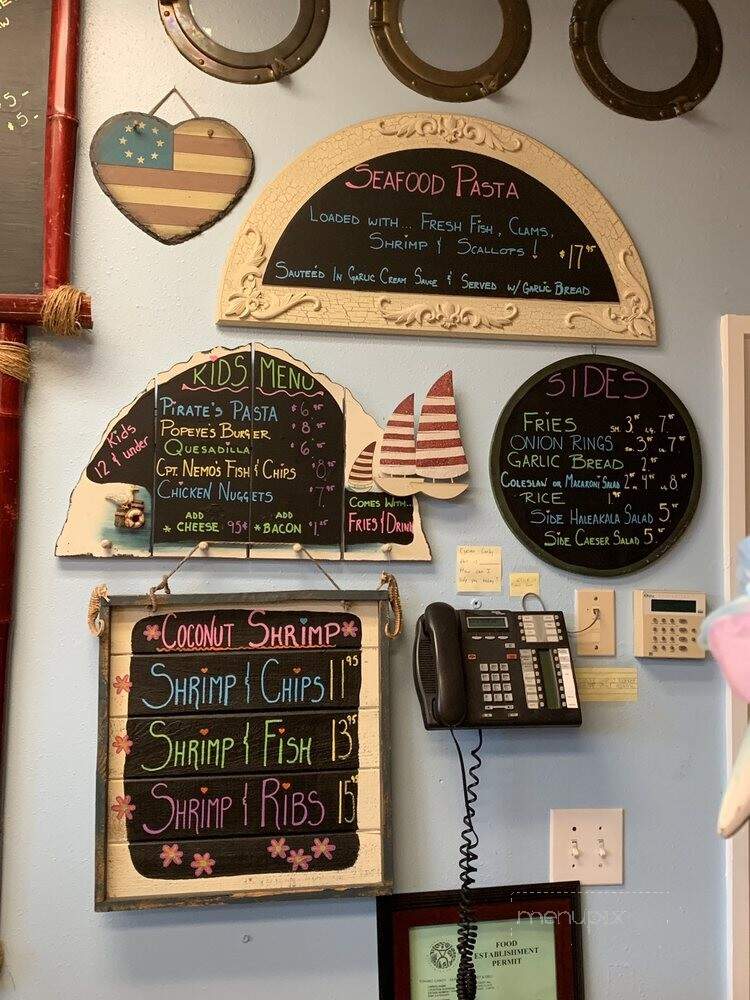 5-
$5-
SEAFOOD PASTA
LOADED WITH... FRESH FISH, CLAMS,
SHRIMP & SCALLOPS! $17.95
SAUTEÉD IN GARLIC CREAM SAUCE & SERVED W/ GARLIC BREAD
KIDS MENU
Kids
12 & under
PIRATE'S PASTA $6.95
POPEYE'S BURGER $8.95
QUESADILLA $6.95
CPT. NEMO'S FISH & CHIPS $8.95
CHICKEN NUGGETS $7.95
ADD
* CHEESE 95¢
ADD
* BACON $1.95
COMES WITH...
FRIES & DRINK
SIDES
FRIES SM. 3.95 LG. 7.95
ONION RINGS SM. 3.95 LG. 7.95
GARLIC BREAD 2.95
COLESLAW OR MACARONI SALAD
RICE 1.95
SIDE HALEAKALA SALAD 5.95
SIDE CAESER SALAD 5.95
COCONUT SHRIMP
SHRIMP & CHIPS 11.95
SHRIMP & FISH 13.95
SHRIMP & RIBS 15.95
FOOD
ESTABLISHMENT
PERMIT
menupix